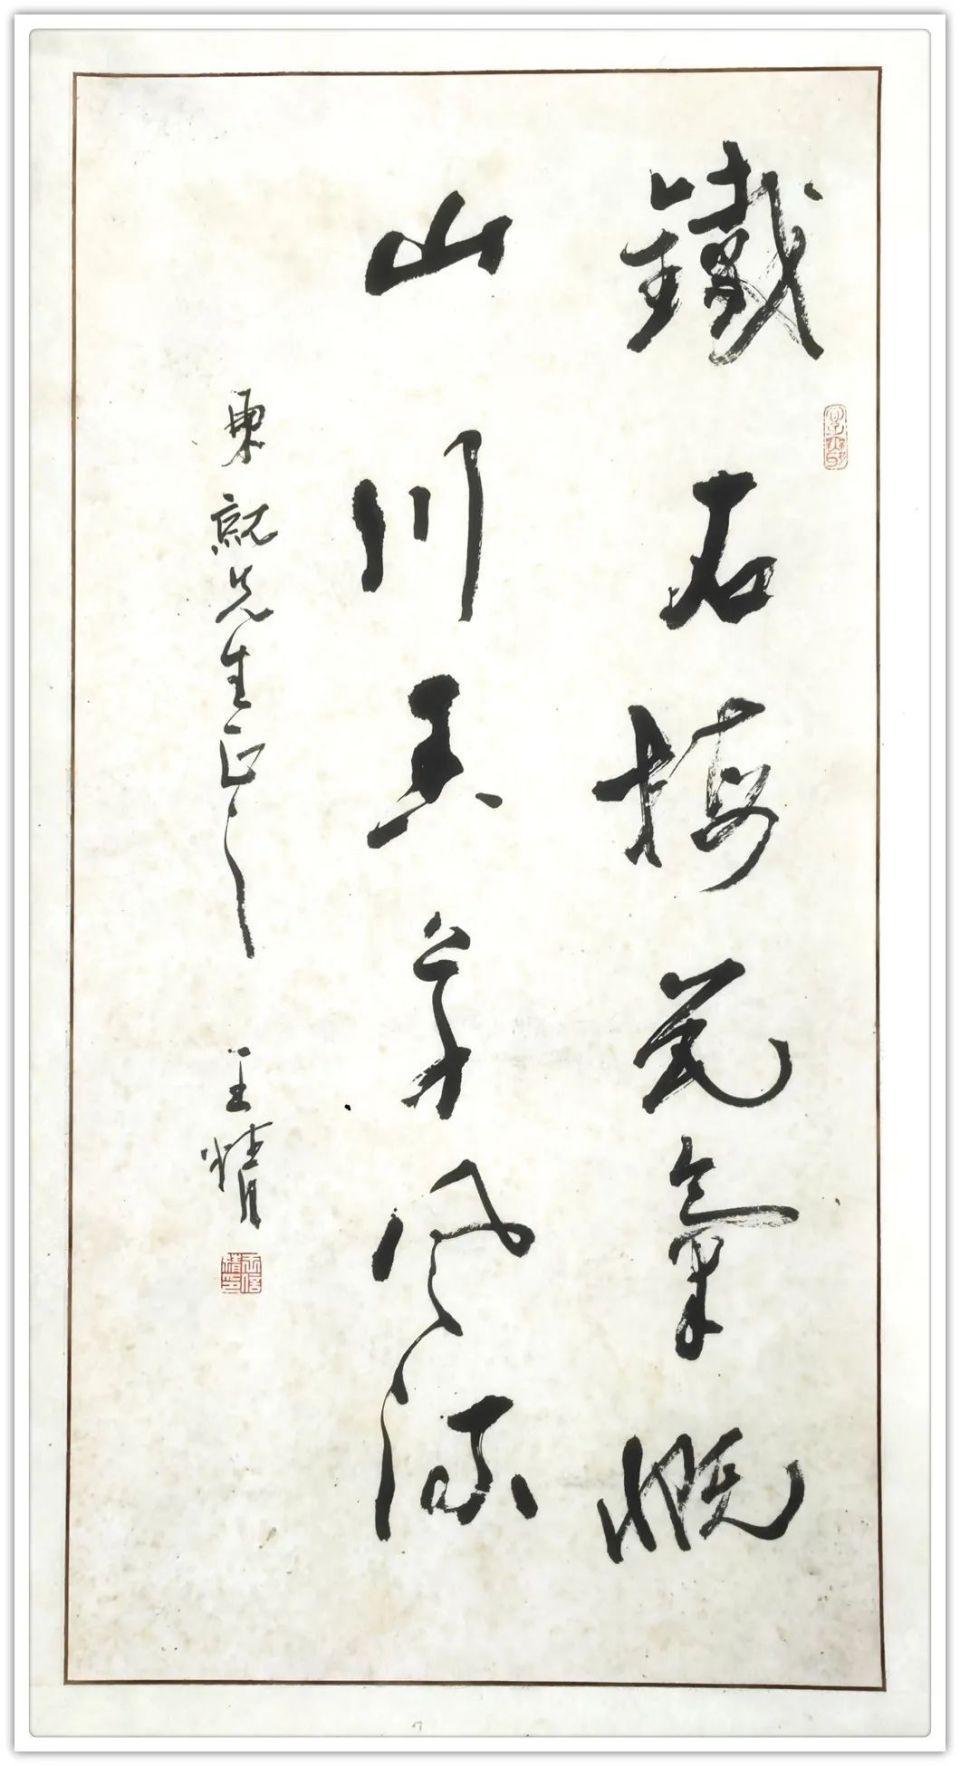 鐵石梅花氣概
山川香草風流
東就先生正之 王惰